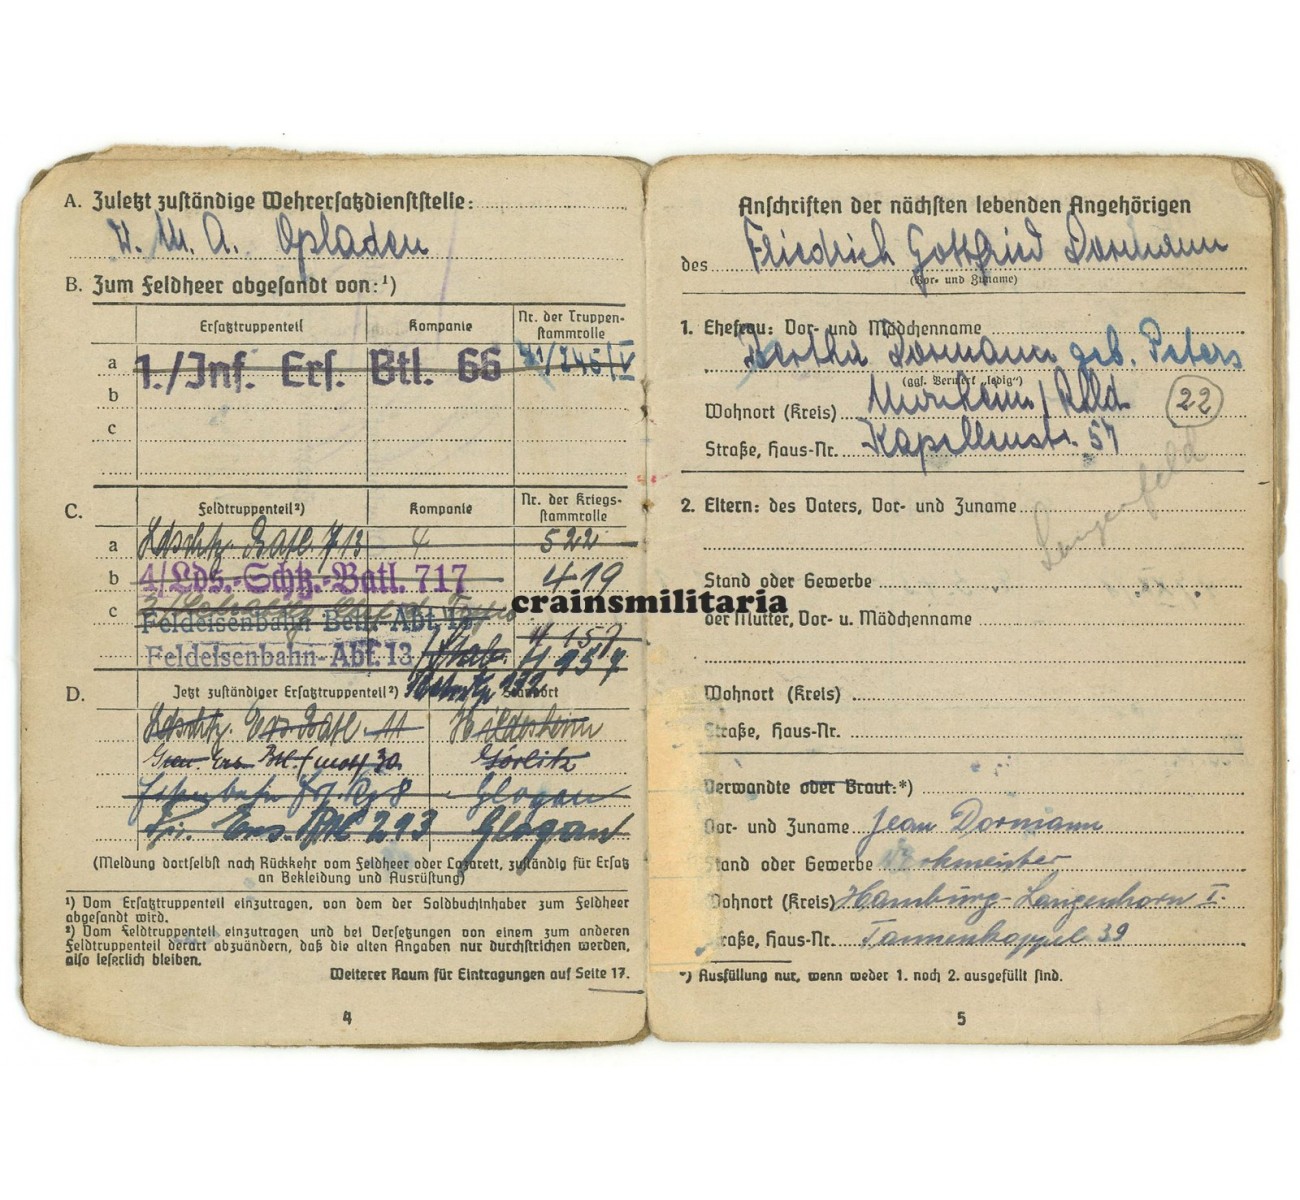 A. Zuletzt zuständige Wehrersatzdienststelle:
W. M. A. Opladen
B. Zum Feldheer abgesandt von:¹)
Ersatztruppenteil Kompanie Nr. der Truppen-
stammrolle
a 1./Inf. Ers. Btl. 66
b
c
C. Feldtruppenteil²) Kompanie Nr. der Kriegs-
stammrolle
a Ldschtz. Batl. 713 4 522
b 4/Lds.-Schtz.-Batl. 717 419
c
Feldeisenbahn Betr. Abt. 157
Feldeisenbahn-Abt. 13 957
D. Jetzt zuständiger Ersatztruppenteil²) Standort
Ldschtz. Ers. Batl. 11 Hildesheim
Görlitz
Glogau
Glogau
(Meldung dortselbst nach Rückkehr vom Feldheer oder Lazarett, zuständig für Ersatz
an Bekleidung und Ausrüstung)
¹) Vom Ersatztruppenteil einzutragen, von dem der Soldbuchinhaber zum Feldheer
abgesandt wird.
²) Vom Feldtruppenteil einzutragen und bei Versetzungen von einem zum anderen
Feldtruppenteil derart abzuändern, daß die alten Angaben nur durchstrichen werden,
also leserlich bleiben.
Weiterer Raum für Eintragungen auf Seite 17.
4
Anschriften der nächsten lebenden Angehörigen
des Friedrich Gottfried Dormann
(Vor- und Zuname)
1. Ehefrau: Vor- und Mädchenname
Bertha Dormann geb. Peters
(ggf. Vermerk „ledig")
Wohnort (Kreis) /Rhld. 22
Straße, Haus-Nr. Kapellenstr. 57
Langenfeld
2. Eltern: des Vaters, Vor- und Zuname
Stand oder Gewerbe
der Mutter, Vor- u. Mädchenname
Wohnort (Kreis)
Straße, Haus-Nr.
Verwandte oder Braut:*)
Vor- und Zuname Jean Dormann
Stand oder Gewerbe Werkmeister
Wohnort (Kreis) Hamburg-Langenhorn I.
Straße, Haus-Nr. Tannenkoppel 39
*) Ausfüllung nur, wenn weder 1. noch 2. ausgefüllt sind.
5
crainsmilitaria